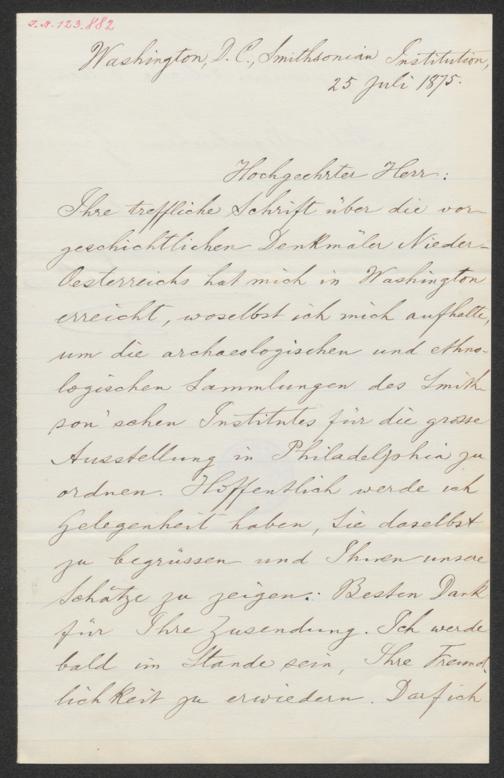 I.N. 123.882
Washington, D.C., Smithsonian Institution,
25 Juli 1875.
Hochgeehrter Herr:
Ihre treffliche Schrift über die vor-
geschichtlichen Denkmäler Nieder-
Oesterreichs hat mich in Washington
erreicht, woselbst ich mich aufhalte,
um die archaeologischen und ethno-
logischen Sammlungen des Smith-
son'schen Institutes für die grosse
Ausstellung in Philadelphia zu
ordnen. Hoffentlich werde ich
Gelegenheit haben, Sie daselbst
zu begrüssen und Ihnen unsere
Schätze zu zeigen. Besten Dank
für Ihre Zusendung. Ich werde
bald im Stande sein, Ihre Freund-
lichkeit zu erwiedern. Darf ich